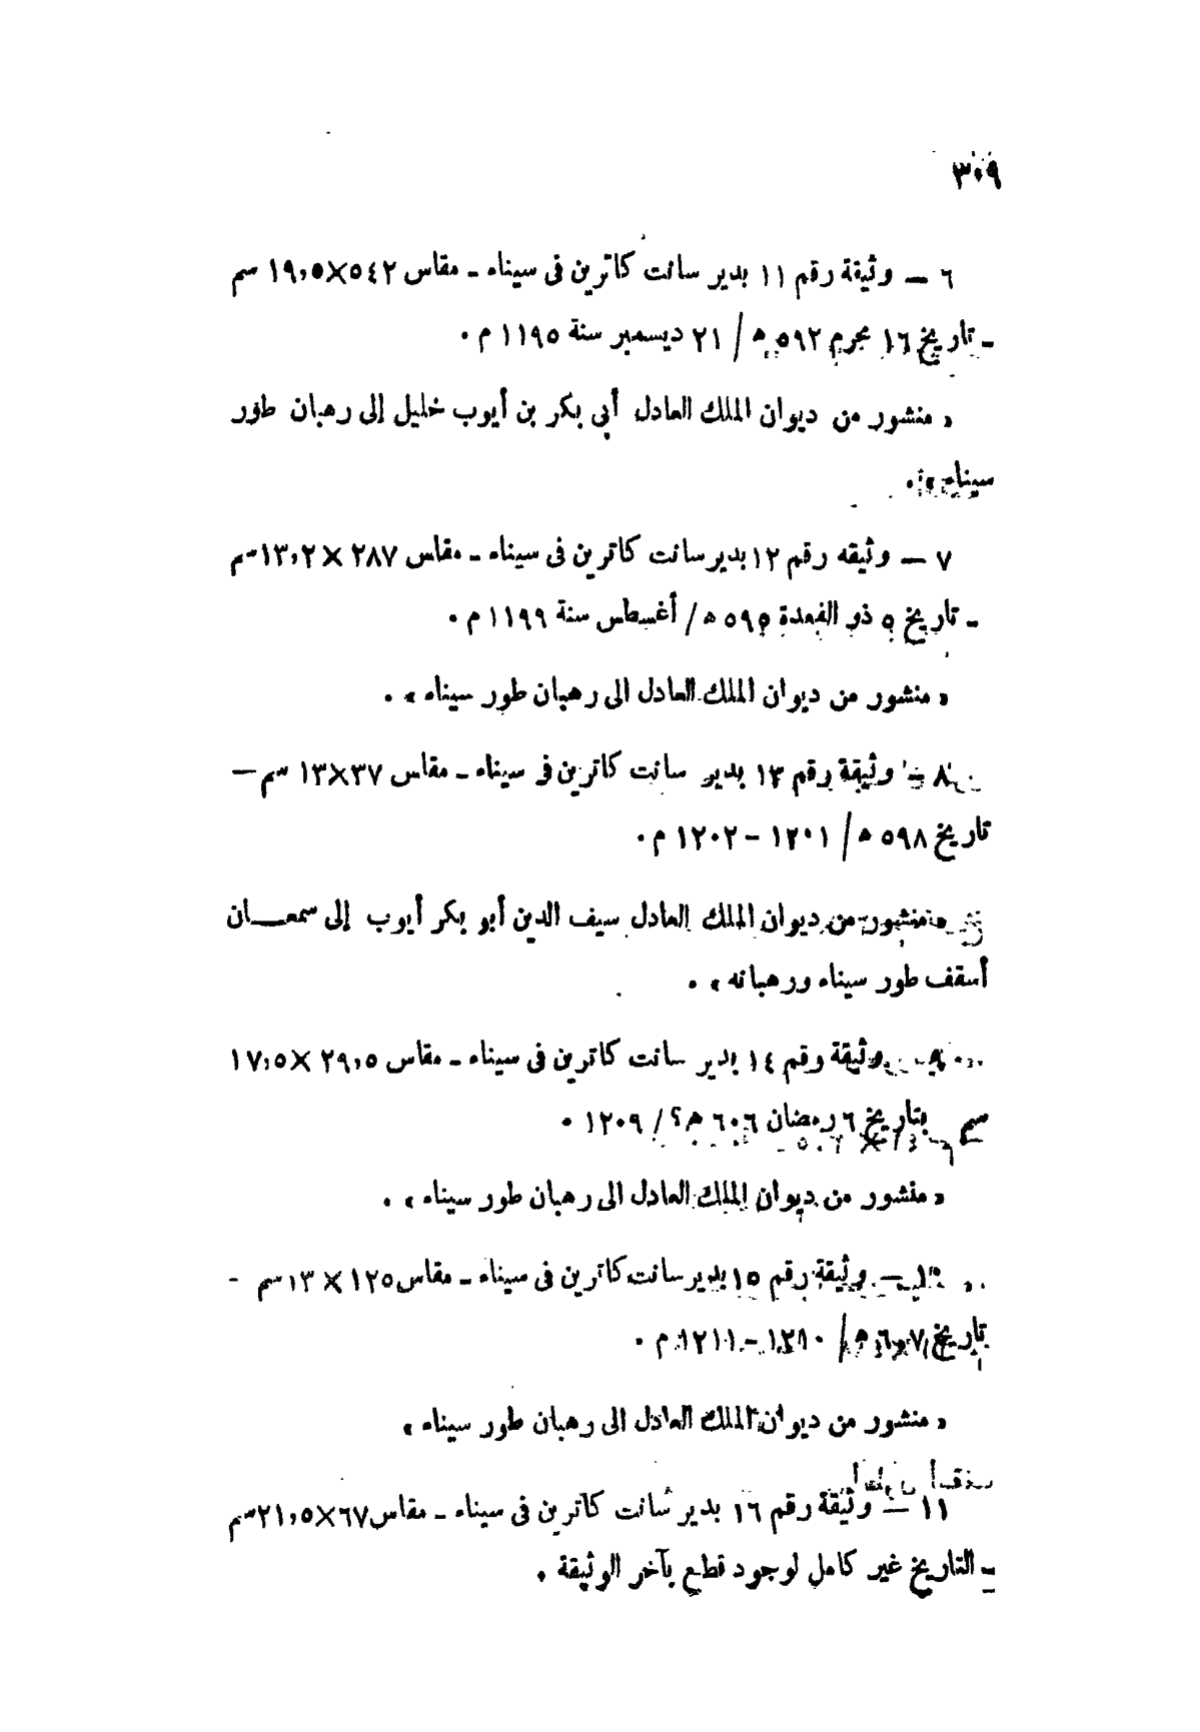 ٣٠٩
٦ — وثيقة رقم ١١ بدير سانت كاترين فى سيناء - مقاس ٥٤٢×١٩,٥ سم
- تاريخ ١٦ محرم ٥٩٢ هـ / ٢١ ديسمبر سنة ١١٩٥ م .
« منشور من ديوان الملك العادل أبي بكر بن أيوب خليل إلى رهبان طور
سيناء » .
٧ — وثيقه رقم ١٢ بدير سانت كاترين فى سيناء - مقاس ٢٨٧ × ١٣,٢ سم
- تاريخ ٥ ذو القعدة ٥٩٥ هـ / أغسطس سنة ١١٩٩ م .
« منشور من ديوان الملك العادل الى رهبان طور سيناء » .
٨ — وثيقة رقم ١٣ بدير سانت كاترين فى سيناء - مقاس ٣٧×١٣ سم —
تاريخ ٥٩٨ هـ / ١٢٠١ - ١٢٠٢ م .
« منشور من ديوان الملك العادل سيف الدين أبو بكر أيوب إلى سمعان
أسقف طور سيناء ورهبانه » .
٩ — وثيقة رقم ١٤ بدير سانت كاترين فى سيناء - مقاس ٢٩,٥ × ١٧,٥
سم بتاريخ ٦ رمضان ٦٠٦ هـ ؟ / ١٢٠٩ .
« منشور من ديوان الملك العادل الى رهبان طور سيناء » .
١٠ — وثيقة رقم ١٥ بدير سانت كاترين فى سيناء - مقاس ١٢٥ × ١٣ سم -
تاريخ ٦٠٧ هـ / ١٢١٠ - ١٢١١ م .
« منشور من ديوان الملك العادل الى رهبان طور سيناء »
١١ — وثيقة رقم ١٦ بدير سانت كاترين فى سيناء - مقاس ٦٧×٢١,٥ سم
- التاريخ غير كامل لوجود قطع بآخر الوثيقة .